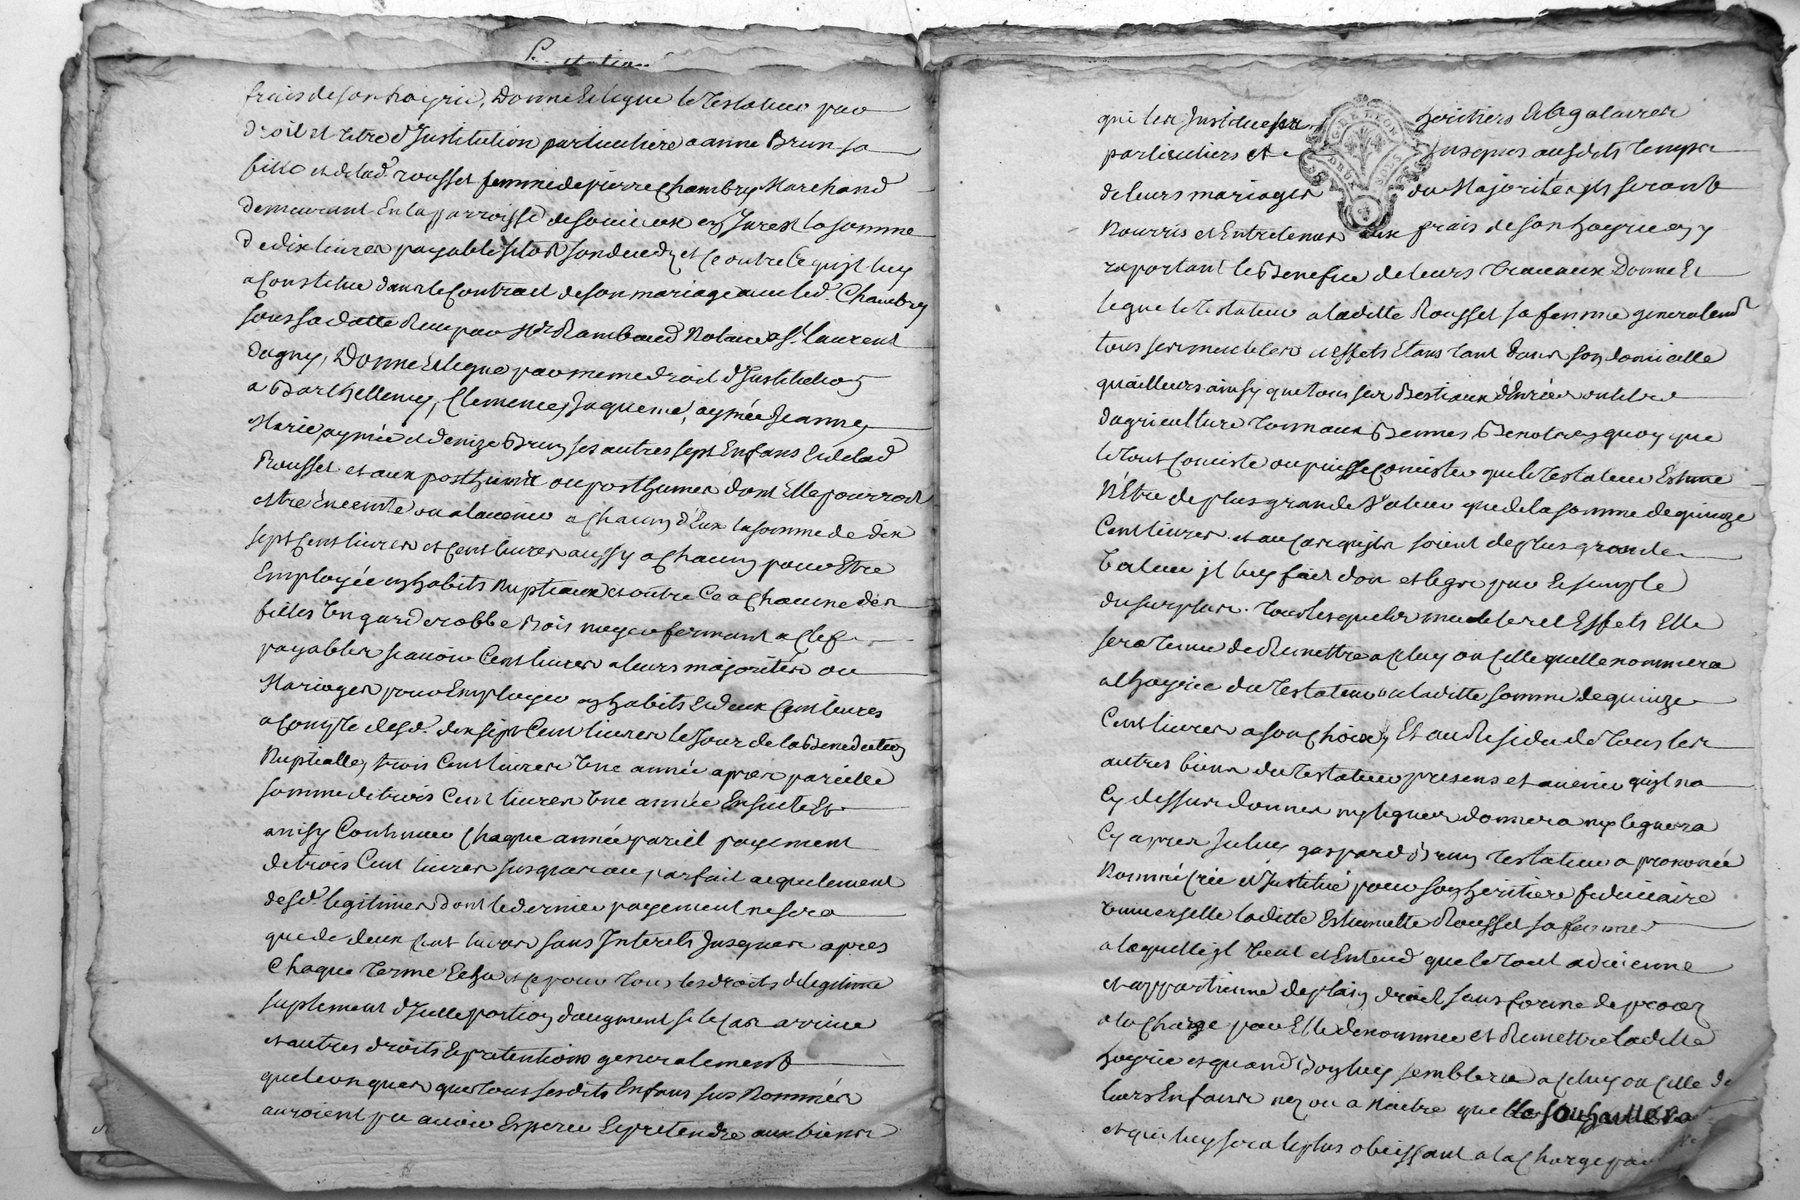 frais de son hoyrie, Donne et legue le Testateur par
droit et titre d'Institution particuliere a anne Brun sa
fille et de lad. rousset femme de pierre Chambry Marchand
demeurant En la parroisse de soucieux en Jarest la somme
de dix livres payable sitot son deced et ce outre ce qu'il luy
a Constitue dans le Contract de son mariage avec led. Chambry
sous sa datte Receu par Mr. Rambaud Notaire a St. Laurent
dagny, Donne et legue par meme droit d'Institution
a Barthellemy, Clemence, Jaqueme, aymée Jeanne,
Marie aymée et denize Brun ses autres sept Enfans et de lad.
Rousset et aux posthume ou posthumes dont Elle pourroit
estre Enceinte ou a lavenir a Chacun d'Eux la somme de dix
sept Cent livres et Cent livres aussy a Chacun pour Etre
Employée en habits Nuptiaux et outre Ce a Chacune des
filles Un garderobbe Bois noyer fermant a Clef
payables scavoir Cent livres a leurs majorités ou
Mariages pour Employer en habits et deux Cent livres
a Compte desd. dix sept Cent livres le Jour de la Benediction
Nuptialle, trois Cent livres Une année apres pareille
somme de trois Cent livres Une année Ensuite Et
ainsy Continuer Chaque année pareil payement
de trois Cent livres Jusques au parfait aquitement
desd. legitimes dont le dernier payement ne sera
que de deux Cent livres sans Interets Jusques apres
Chaque terme Echu et ce pour Tous les droits de legitime
suplement d'Icelle portion daugment si le Cas arrive
et autres droits et pretentions generalement
quelconques que tous sesdits Enfans sus Nommés
auroient pu avoir Esperer et pretendre aux biens
qui les Institue ses heritiers et legataires
particuliers et Jusques ausdits temps
de leurs mariages ou Majorités ils seront
Nourris et Entretenus aux frais de son hoyrie en y
raportant le Benefice de leurs travaux Donne Et
legue le Testateur a laditte Rousset sa femme generalemt.
tous ses meubles et effets Etans tant dans son domicille
quailleurs ainsy que tous ses Bestiaux denrées outils
dagriculture Tonnaux Bennes Benots en quoy que
le tout Consiste ou puisse Consister que le Testateur Estime
N'Etre de plus grande Valeur que de la somme de quinze
Cent livres et au Cas qu'ils soient de plus grande
Valeur il luy fait don et legs par Exemple
du surplus. Tous lesquels meubles et Effets Elle
sera Tenue de Remettre a Celuy ou Celle quelle nommera
a lhoyrie du Testateur ou laditte somme de quinze
Cent livres a son Choix, Et au Residu de tous les
autres biens du Testateur presens et avenir qu'il na
Cy dessus donnes ny legues donnera ny leguera
Cy apres Iceluy gaspard Brun testateur a prononcé
Nommé Crée et Institué pour son heritiere fiduciaire
Universelle laditte Estiennette Rousset sa femme
a laquelle il Veut et Entend que le tout advienne
et appartienne de plain droit sans forme de proces
a la Charge par Elle de nommer et Remettre laditte
hoyrie et quand Bon luy semblera a Celuy ou Celle de
leurs Enfans nez ou a Naitre que lle souhaittera
et qui luy sera le plus obeissant a la Charge par